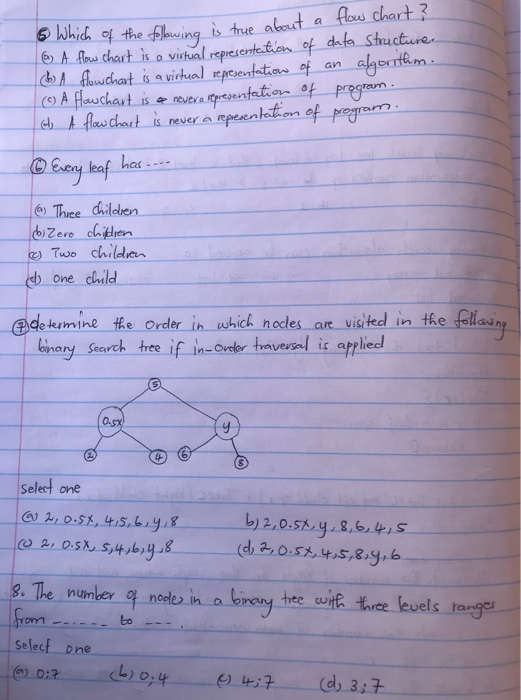 5 Which of the following is true about a flow chart?
(a) A flow chart is a virtual representation of data structure.
(b) A flowchart is a virtual representation of an algorithm.
(c) A flowchart is never a representation of program.
(d) A flowchart is never a representation of program.
6 Every leaf has ----
(a) Three children
(b) Zero children
(c) Two children
(d) one child
7 determine the order in which nodes are visited in the following
binary search tree if in-order traversal is applied
5
0.5x y
2 4 6 8
select one
(a) 2, 0.5x, 4,5,6,y,8 b) 2,0.5x,y,8,6,4,5
(c) 2, 0.5x, 5,4,6,y,8 (d) 2,0.5x,4,5,8,y,6
8. The number of nodes in a binary tree with three levels ranges
from ------ to ---.
Select one
(a) 0;7 (b) 0;4 (c) 4;7 (d) 3;7